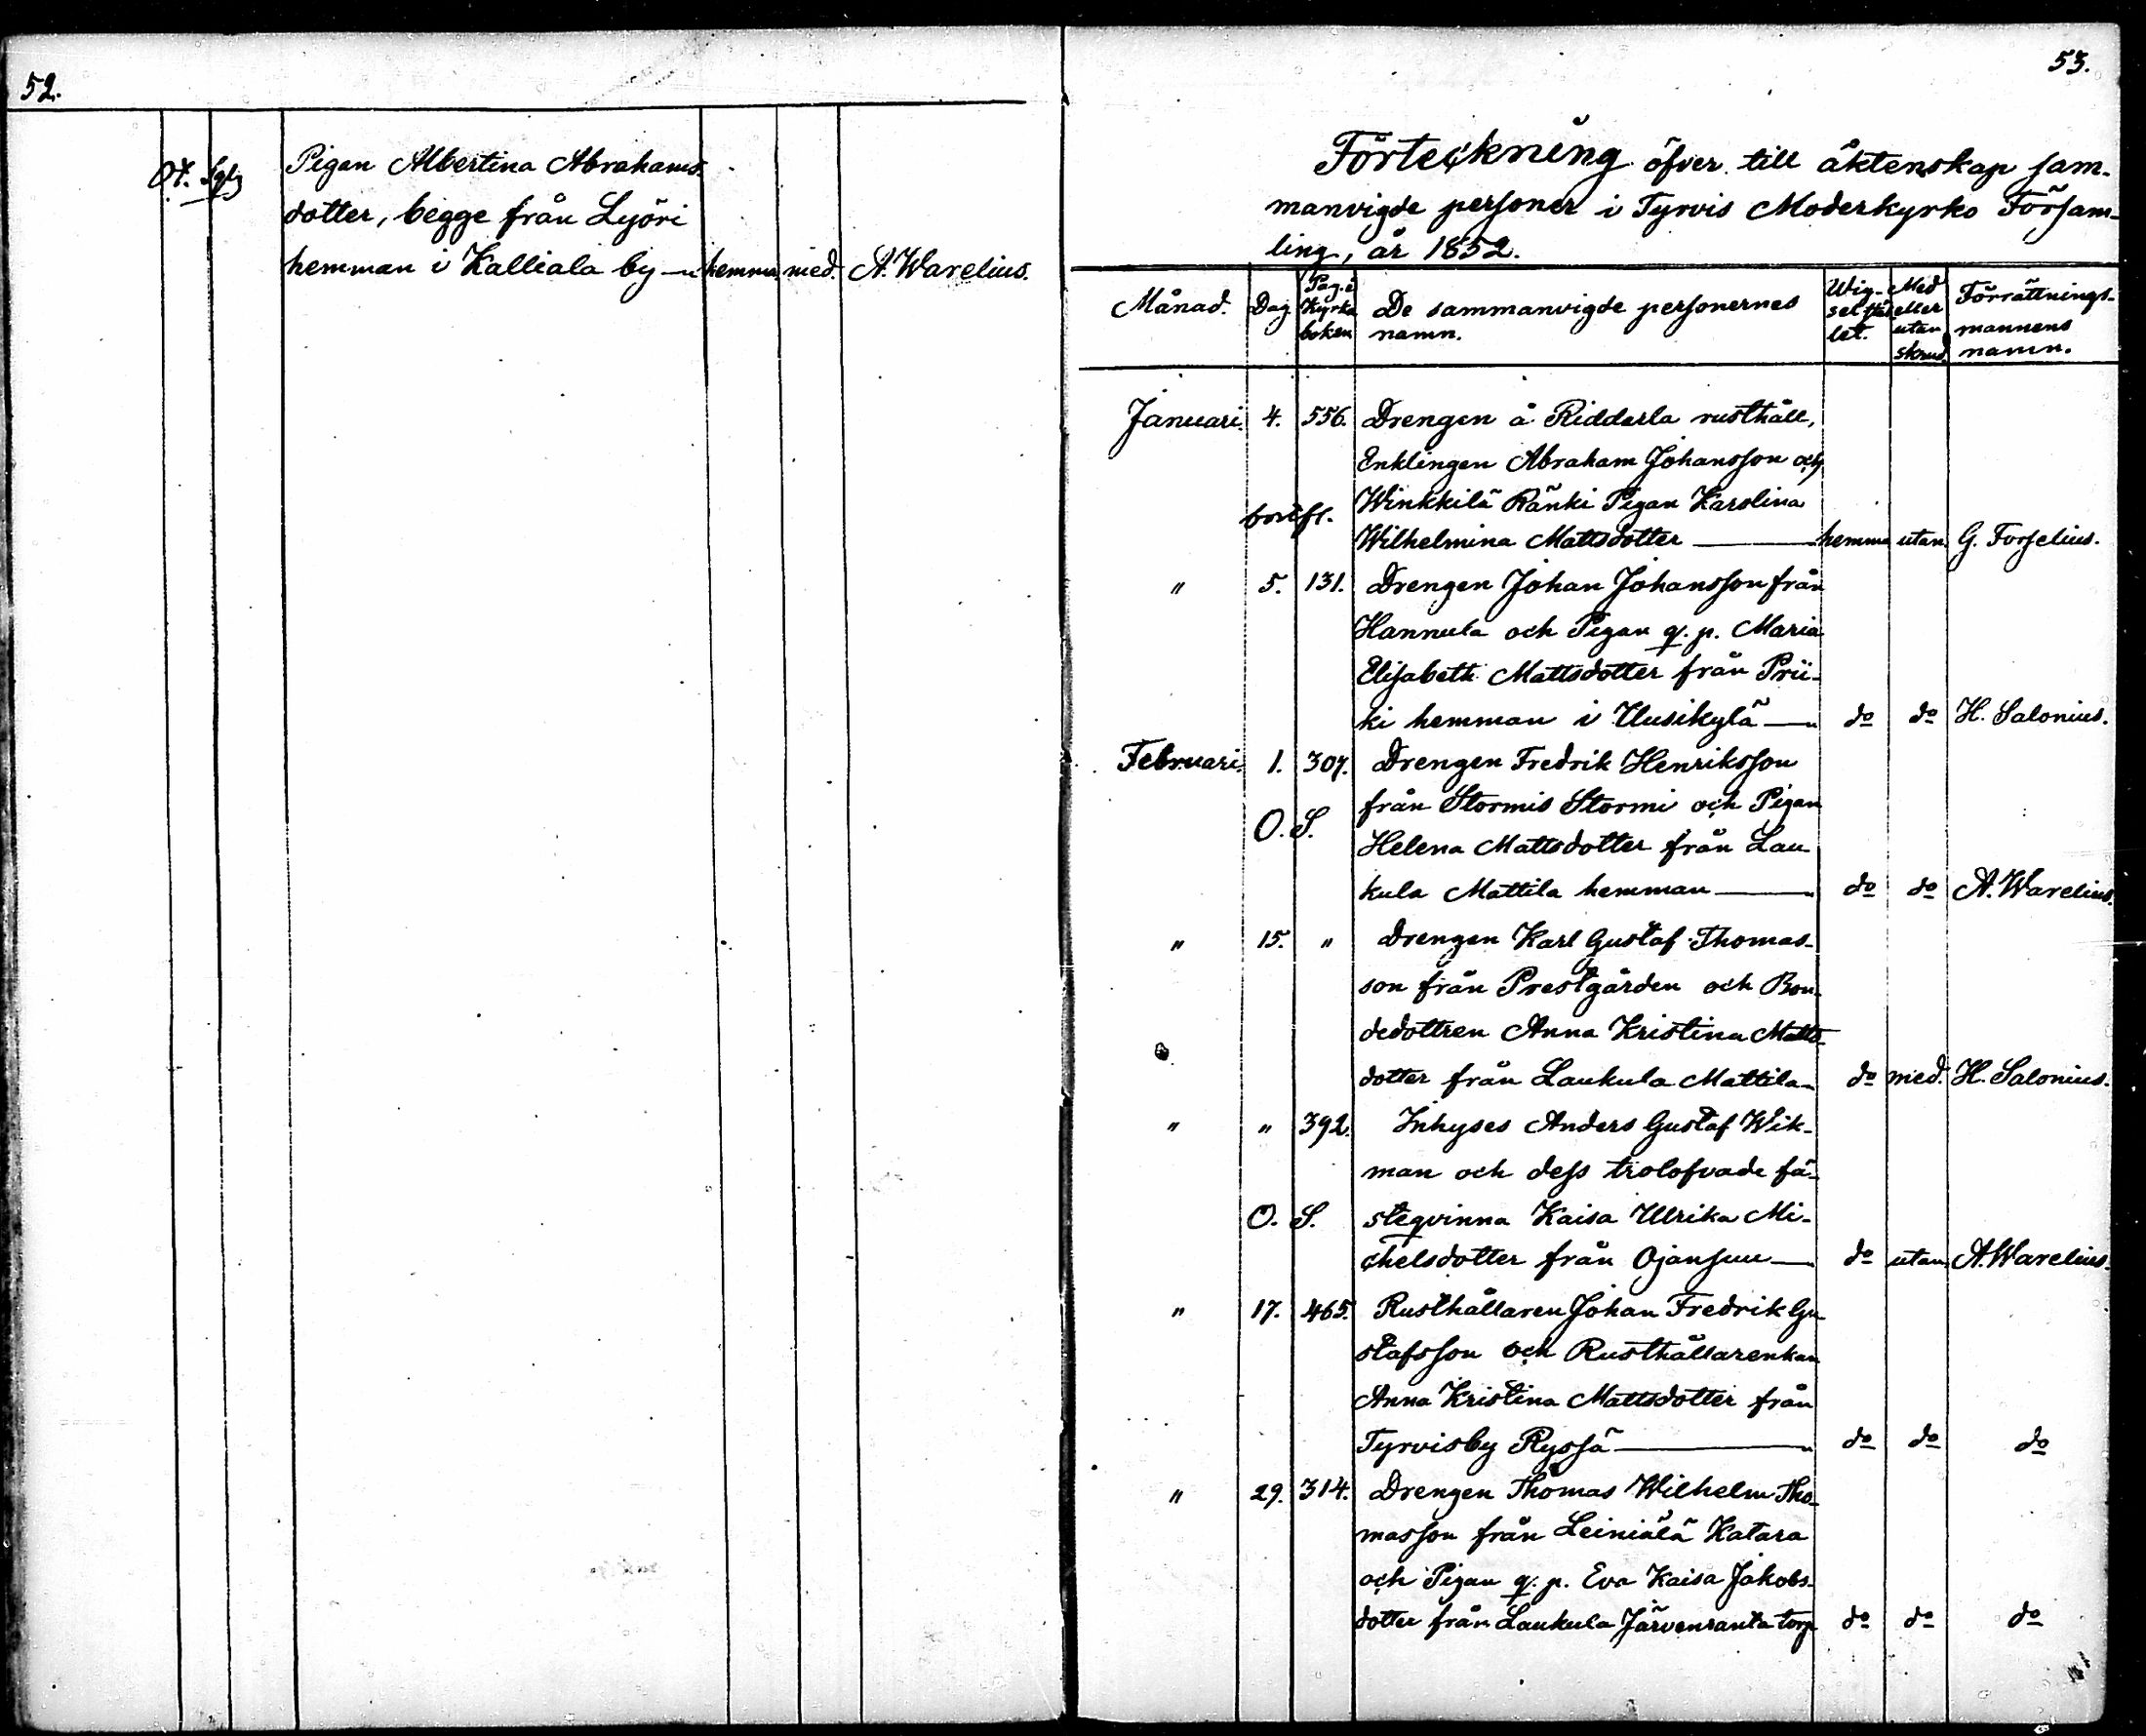 52.
Pigan Albertina Abrahams-
dotter, begge från Lyöri
hemman i Kalliala by — hemma med. A. Warelius.
53.
Förteckning öfver till äktenskap sam-
manvigde personer i Tyrvis Moderkyrko Församl-
ling, år 1852.
Månad. Dag Pag. i Kyrko boken De sammanvigde personernes namn. Wig-selstäl let. Med eller utan skrud. Förrättnings-mannens namn.
Januari. 4. 556. Drengen å Ridderla rusthåll,
Enklingen Abraham Johansson och
Winkkilä Ränki Pigan Karolina
bortfl.
Wilhelmina Mattsdotter — hemma utan. G. Forselius.
" 5. 131. Drengen Johan Johansson från
Hannula och Pigan q. p. Maria
Elisabeth Mattsdotter från Prii-
ki hemman i Uusikylä — do do H. Salonius.
Februari. 1. 307. Drengen Fredrik Henriksson
från Stormis Stormi och Pigan
O. S.
Helena Mattsdotter från Lau
kula Mattila hemman — do do A. Warelius.
" 15. " Drengen Karl Gustaf Thomas-
son från Prestgården och Bon-
dedottren Anna Kristina Matts-
dotter från Laukula Mattila — do med. H. Salonius.
" " 392. Inhyses Anders Gustaf Wik-
man och dess trolofvade fä-
O. S. steqvinna Kaisa Ulrika Mi-
chelsdotter från Ojansuu — do utan A. Warelius.
" 17. 465. Rusthållaren Johan Fredrik Gu
stafsson och Rusthållarenkan
Anna Kristina Mattsdotter från
Tyrvisby Ryssä — do do do
" 29. 314. Drengen Thomas Wilhelm Tho-
masson från Leiniälä Katara
och Pigan q. p. Eva Kaisa Jakobs-
dotter från Laukula Järvenranta torp do do do